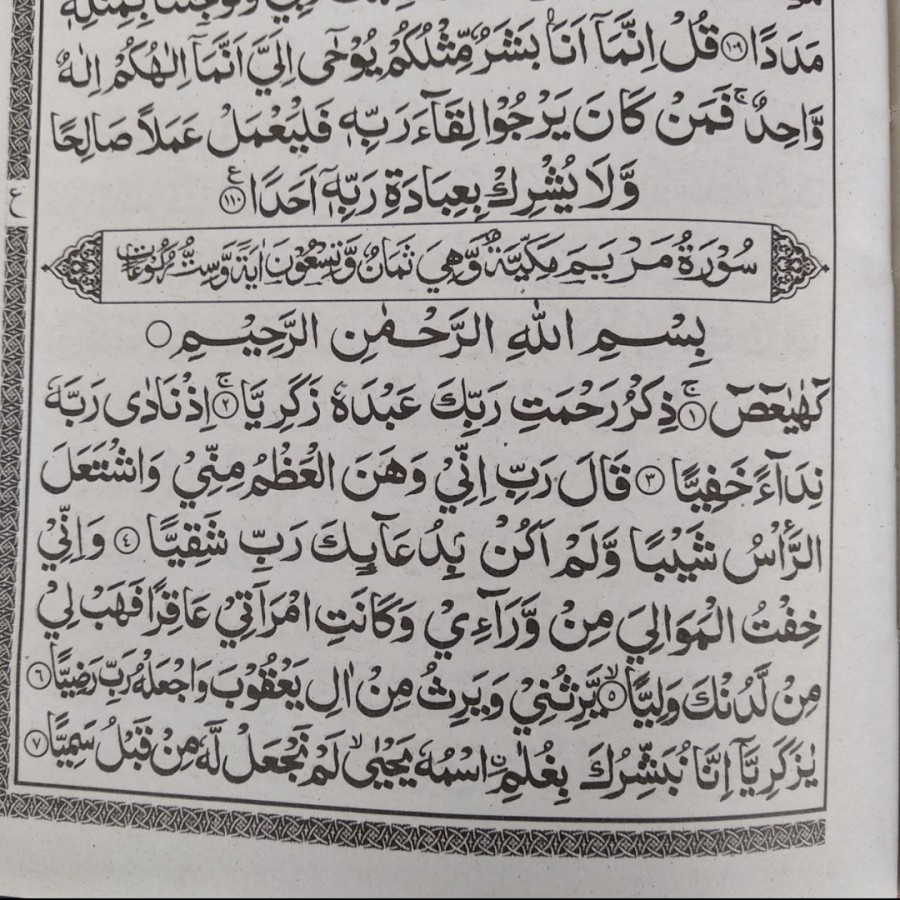 وَلَوْ جِئْنَا بِمِثْلِهٖ
مَدَدًا ﴿١٠٩﴾ قُلْ اِنَّمَاۤ اَنَا بَشَرٌ مِّثْلُكُمْ يُوْحٰۤى اِلَيَّ اَنَّمَاۤ اِلٰهُكُمْ اِلٰهٌ
وَّاحِدٌ ۚ فَمَنْ كَانَ يَرْجُوْا لِقَآءَ رَبِّهٖ فَلْيَعْمَلْ عَمَلًا صَالِحًا
وَّلَا يُشْرِكْ بِعِبَادَةِ رَبِّهٖۤ اَحَدًا ﴿١١٠﴾ ع
ع
سُوْرَةُ مَرْيَمَ مَكِّيَّةٌ وَّهِيَ ثَمَانٌ وَّتِسْعُوْنَ اٰيَةً وَّسِتُّ رُكُوْعَاتٍ
بِسْمِ اللّٰهِ الرَّحْمٰنِ الرَّحِيْمِ ○
كٓهٰيٰعٓصٓ ۚ﴿١﴾ ذِكْرُ رَحْمَتِ رَبِّكَ عَبْدَهٗ زَكَرِيَّا ۚ﴿٢﴾ اِذْ نَادٰى رَبَّهٗ
نِدَآءً خَفِيًّا ﴿٣﴾ قَالَ رَبِّ اِنِّيْ وَهَنَ الْعَظْمُ مِنِّيْ وَاشْتَعَلَ
الرَّاْسُ شَيْبًا وَّلَمْ اَكُنْۢ بِدُعَآىِٕكَ رَبِّ شَقِيًّا ﴿٤﴾ وَاِنِّيْ
خِفْتُ الْمَوَالِيَ مِنْ وَّرَآءِيْ وَكَانَتِ امْرَاَتِيْ عَاقِرًا فَهَبْ لِيْ
مِنْ لَّدُنْكَ وَلِيًّا ۙ﴿٥﴾ يَّرِثُنِيْ وَيَرِثُ مِنْ اٰلِ يَعْقُوْبَ وَاجْعَلْهُ رَبِّ رَضِيًّا ﴿٦﴾
يٰزَكَرِيَّاۤ اِنَّا نُبَشِّرُكَ بِغُلٰمِ ࣙاسْمُهٗ يَحْيٰى ۙ لَمْ نَجْعَلْ لَّهٗ مِنْ قَبْلُ سَمِيًّا ﴿٧﴾